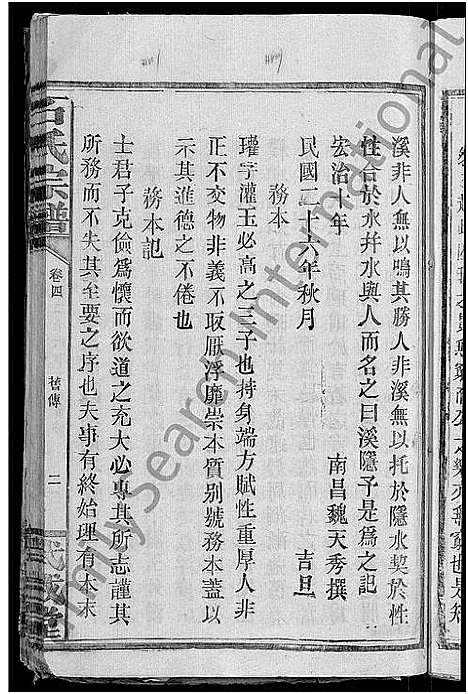 溪非人無以鳴其勝人非溪無以托於隱水契於性
性合於水幷水與人而名之曰溪隱予是為之記
宏治十年　南昌魏天秀撰
民國二十六年秋月　吉旦
務本
瓘字灌玉必高之三子也持身端方賦性重厚人非
正不交物非義不取厭浮靡崇本質别號務本蓋以
示其進德之不倦也
務本記
士君子克儉爲懷而欲道之充大必專其所志謹其
所務而不失其至要之序也夫事有終始理有本末
石氏宗譜
卷四
舊傳
二
FamilySearch International